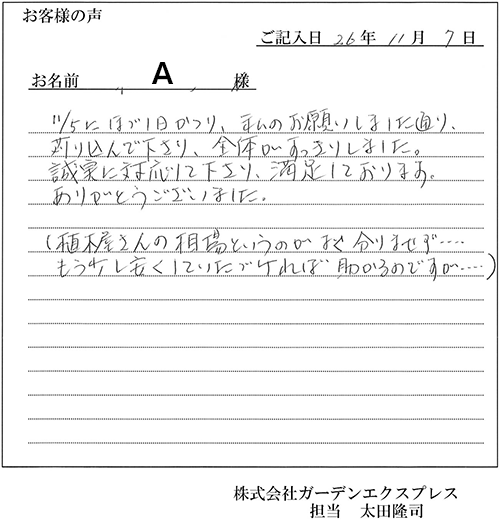 お客様の声
ご記入日 26年 11月 7日
お名前 A 様
11/5にほぼ1日かかり、私のお願いしました通り、
刈り込んで下さり、全体がすっきりしました。
誠実に対応して下さり、満足しております。
ありがとうございました。
(植木屋さんの相場というのがよく分りませず‥‥
もう少し安くしていただければ助かるのですが‥‥)
株式会社ガーデンエクスプレス
担当 太田隆司